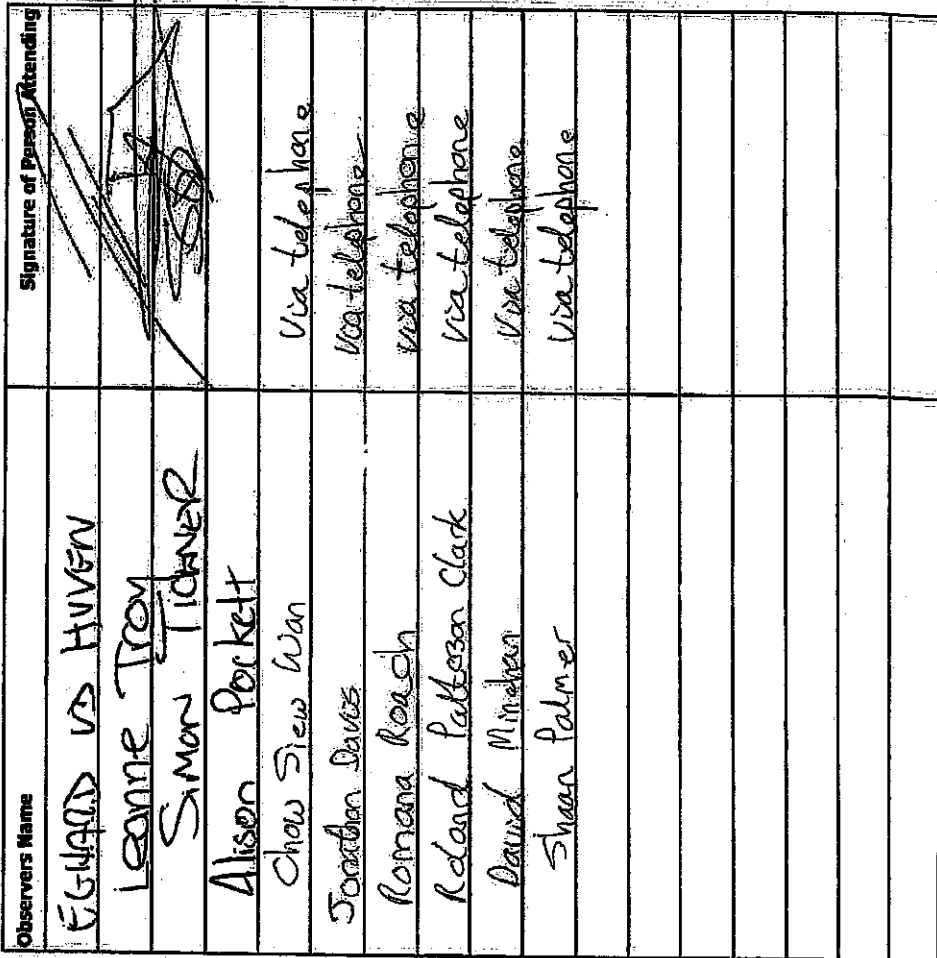 Observers Name Signature of Person Attending
EGHARD VD HUVEN
Leanne Troy
SIMON TICKNER
Alison Pockett
Chow Siew Wan Via telephone
Jonathan Davis via telephone
Romana Roach via telephone
Roland Patterson Clark via telephone
David Minehan via telephone
Shaun Palmer via telephone